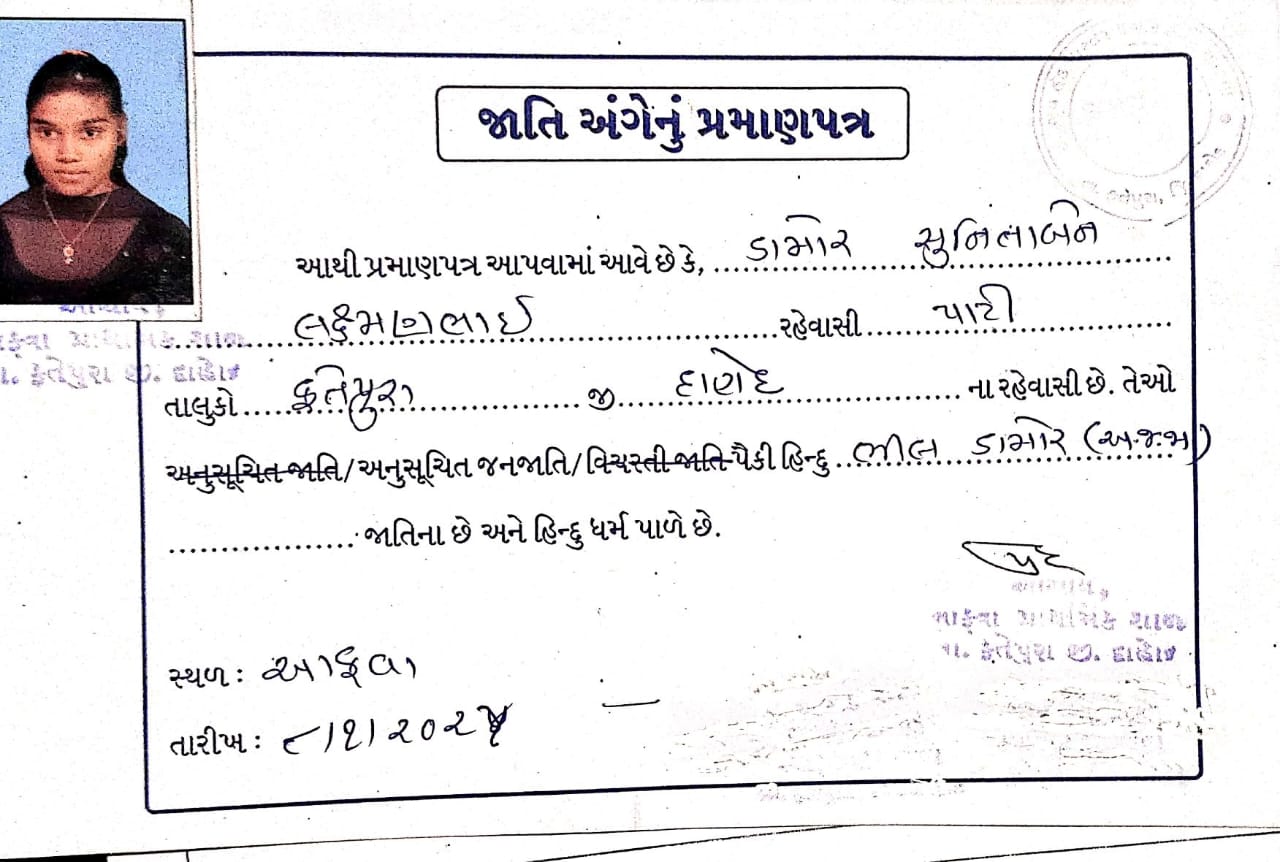 જાતિ અંગેનું પ્રમાણપત્ર
આથી પ્રમાણપત્ર આપવામાં આવે છે કે, ડામોર સુનિતાબેન
લક્ષ્મણભાઈ રહેવાસી પાટી
તાલુકો ફતેપુરા જી. દાહોદ ના રહેવાસી છે. તેઓ
અનુસૂચિત જાતિ/અનુસૂચિત જનજાતિ/વિચરતી જાતિ પૈકી હિન્દુ ભીલ ડામોર (અ.જ.જા)
જાતિના છે અને હિન્દુ ધર્મ પાળે છે.
આચાર્ય,
આફવા પ્રાથમિક શાળા
તા. ફતેપુરા જી. દાહોદ
સ્થળ: આફવા
તારીખ: